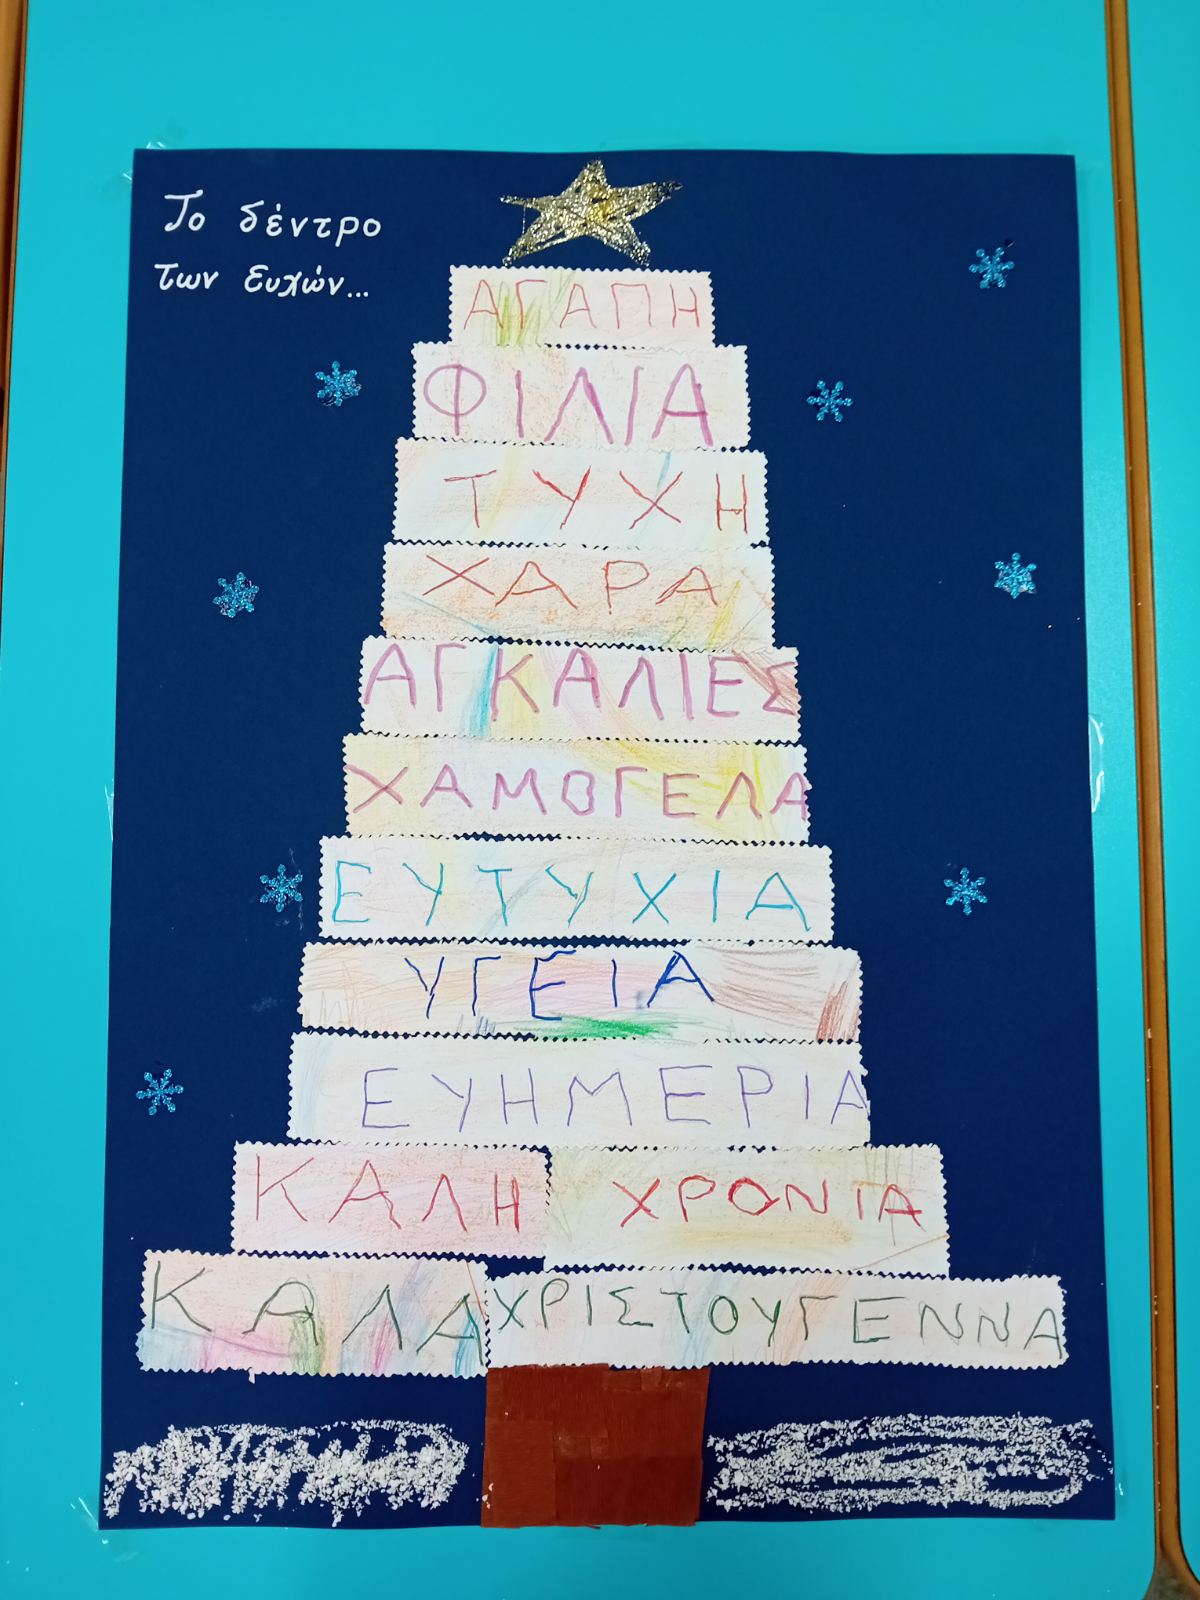 Το δέντρο
των ευχών...
ΑΓΑΠΗ
ΦΙΛΙΑ
ΤΥΧΗ
ΧΑΡΑ
ΑΓΚΑΛΙΕΣ
ΧΑΜΟΓΕΛΑ
ΕΥΤΥΧΙΑ
ΥΓΕΙΑ
ΕΥΗΜΕΡΙΑ
ΚΑΛΗ ΧΡΟΝΙΑ
ΚΑΛΑ ΧΡΙΣΤΟΥΓΕΝΝΑ